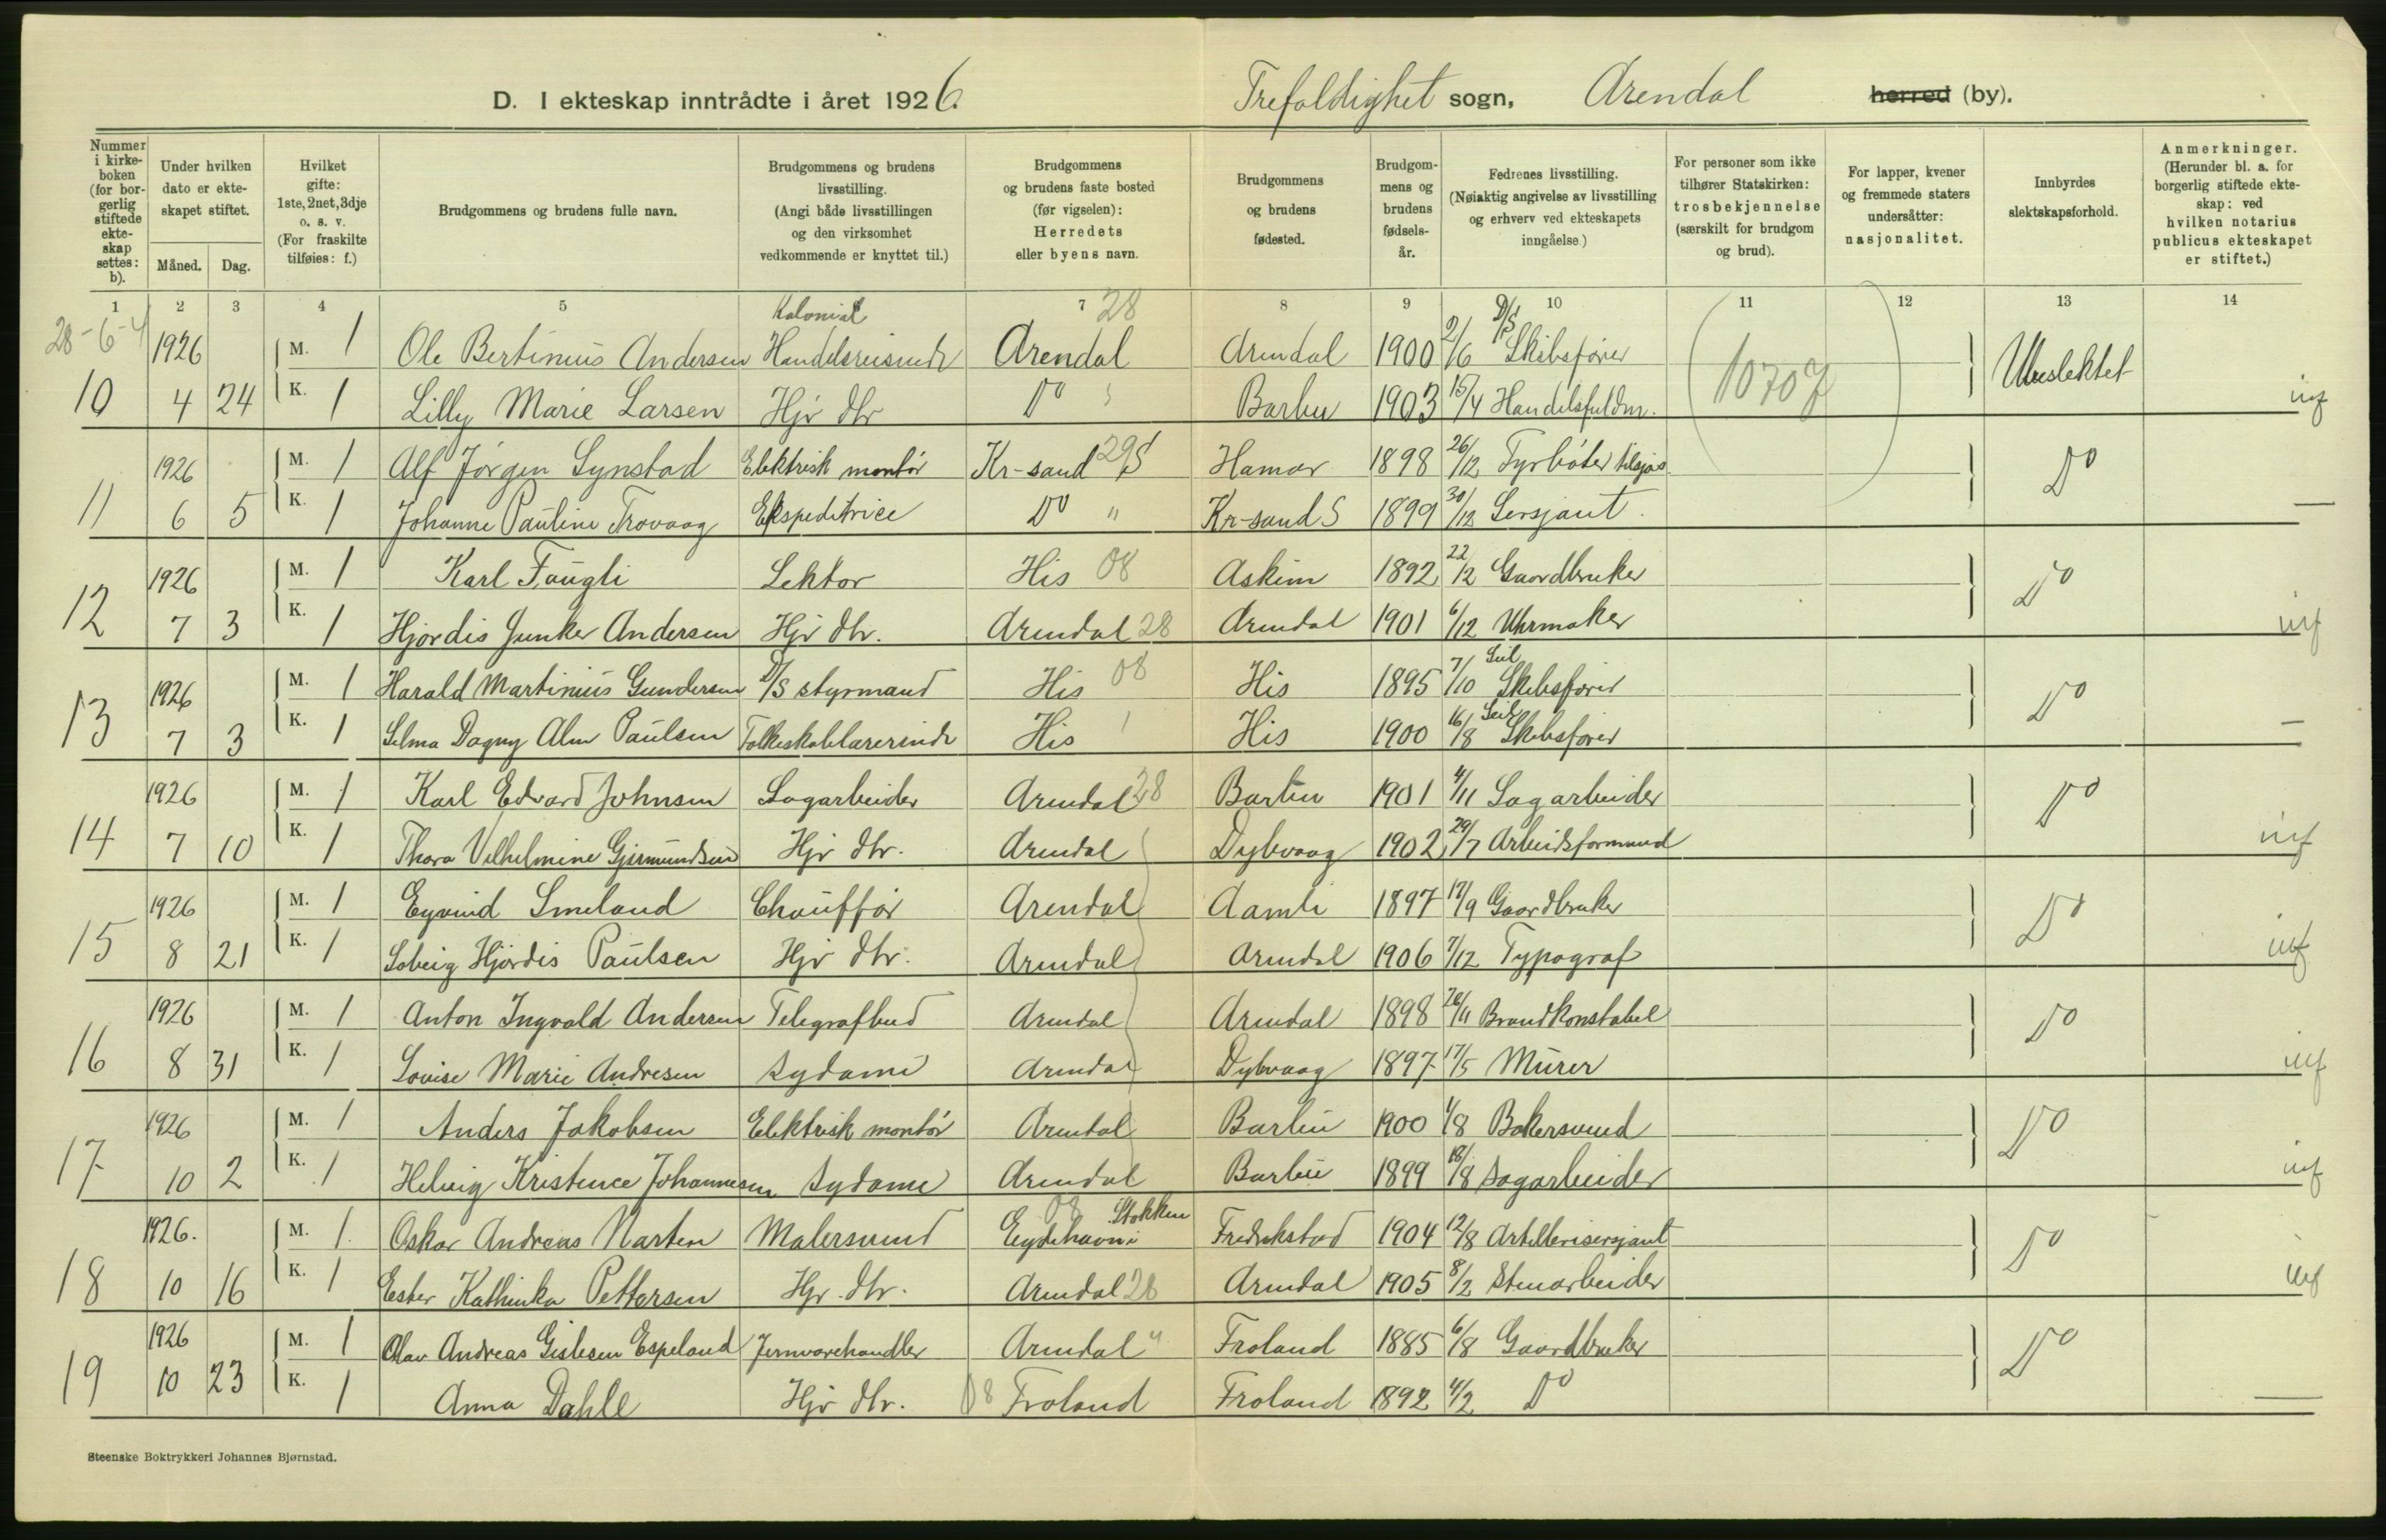 D. I ekteskap inntrådte i året 1926. Trefoldighet sogn, Arendal herred (by).
Nummer i kirkeboken (for borgerlig stiftede ekteskap settes: b).
Under hvilken dato er ekteskapet stiftet.
Måned. Dag.
Hvilket gifte: 1ste, 2net, 3dje o. s. v. (For fraskilte tilføies: f.)
Brudgommens og brudens fulle navn.
Brudgommens og brudens livsstilling. (Angi både livsstillingen og den virksomhet vedkommende er knyttet til.)
Brudgommens og brudens faste bosted (før vigselen): Herredets eller byens navn.
Brudgommens og brudens fødested.
Brudgommens og brudens fødselsår.
Fedrenes livsstilling. (Nøiaktig angivelse av livsstilling og erhverv ved ekteskapets inngåelse.)
For personer som ikke tilhører Statskirken: trosbekjennelse (særskilt for brudgom og brud).
For lapper, kvener og fremmede staters undersåtter: nasjonalitet.
Innbyrdes slektskapsforhold.
Anmerkninger. (Herunder bl. a. for borgerlig stiftede ekteskap: ved hvilken notarius publicus ekteskapet er stiftet.)
1 2 3 4 5 6 7 8 9 10 11 12 13 14
28-6-4 28 10707
1926 M. 1 Ole Bertinius Andersen Kolonial Handelsreisende Arendal Arendal 1900 2/6 D/S Skibsfører Ubeslektet
10 4 24 K. 1 Lilly Marie Larsen Hjv dtr Do Barbu 1903 15/4 Handelsfuldm.
1926 M. 1 Alf Jörgen Synstad Elektrisk montör Kr-sand S 29 Hamar 1898 26/12 Fyrböter tilsjøs Do
11 6 5 K. 1 Johanne Pauline Trovaag Ekspeditrice Do " Kr-sand S 1899 30/12 Sersjant.
1926 M. 1 Karl Fougli Lektor His 08 Askim 1892 22/12 Gaardbruker Do
12 7 3 K. 1 Hjördis Junker Andersen Hjv dtr. Arendal 28 Arendal 1901 6/12 Uhrmaker
1926 M. 1 Harald Martinius Gundersen D/S styrmand His 08 His 1895 7/10 Seil Skibsfører Do
13 7 3 K. 1 Selma Dagny Alm Paulsen Folkeskolelærerinde His His 1900 16/8 Seil Skibsfører
1926 M. 1 Karl Edvard Johnsen Sagarbeider Arendal 28 Barbu 1901 4/11 Sagarbeider Do
14 7 10 K. 1 Thora Vilhelmine Gjermundsen Hjv dtr. Arendal Dybvaag 1902 29/7 Arbeidsformand
1926 M. 1 Eyvind Smeland Chauffør Arendal Aamli 1897 17/9 Gaardbruker Do
15 8 21 K. 1 Solveig Hjördis Paulsen Hjv dtr. Arendal Arendal 1906 7/12 Typograf
1926 M. 1 Anton Ingvald Andersen Telegrafbud Arendal Arendal 1898 /11 Brandkonstabel Do
16 8 31 K. 1 Lovise Marie Andresen Sydame Arendal Dybvaag 1897 17/5 Murer
1926 M. 1 Anders Jakobsen Elektrisk montör Arendal Barbu 1900 1/8 Bakersvend Do
17 10 2 K. 1 Helvig Kristence Johannesen Sydame Arendal Barbu 1899 18/8 Sagarbeider
1926. M. 1 Oskar Andreas Narten Malersvend Eydehavn i Stokken 08 Fredrikstad 1904 12/8 Artillerisersjant Do
18 10 16 K. 1 Ester Kathinka Pettersen Hjv. dtr. Arendal 28 Arendal 1905 8/2 Stenarbeider
1926 M. 1 Olav Andreas Gislesen Espeland Jernvarehandler Arendal " Froland 1885 6/8 Gaardbruker Do
19 10 23 K. 1 Anna Dahle Hjv dtr. 08 Froland Froland 1892 4/2 Do
Steenske Boktrykkeri Johannes Bjørnstad.